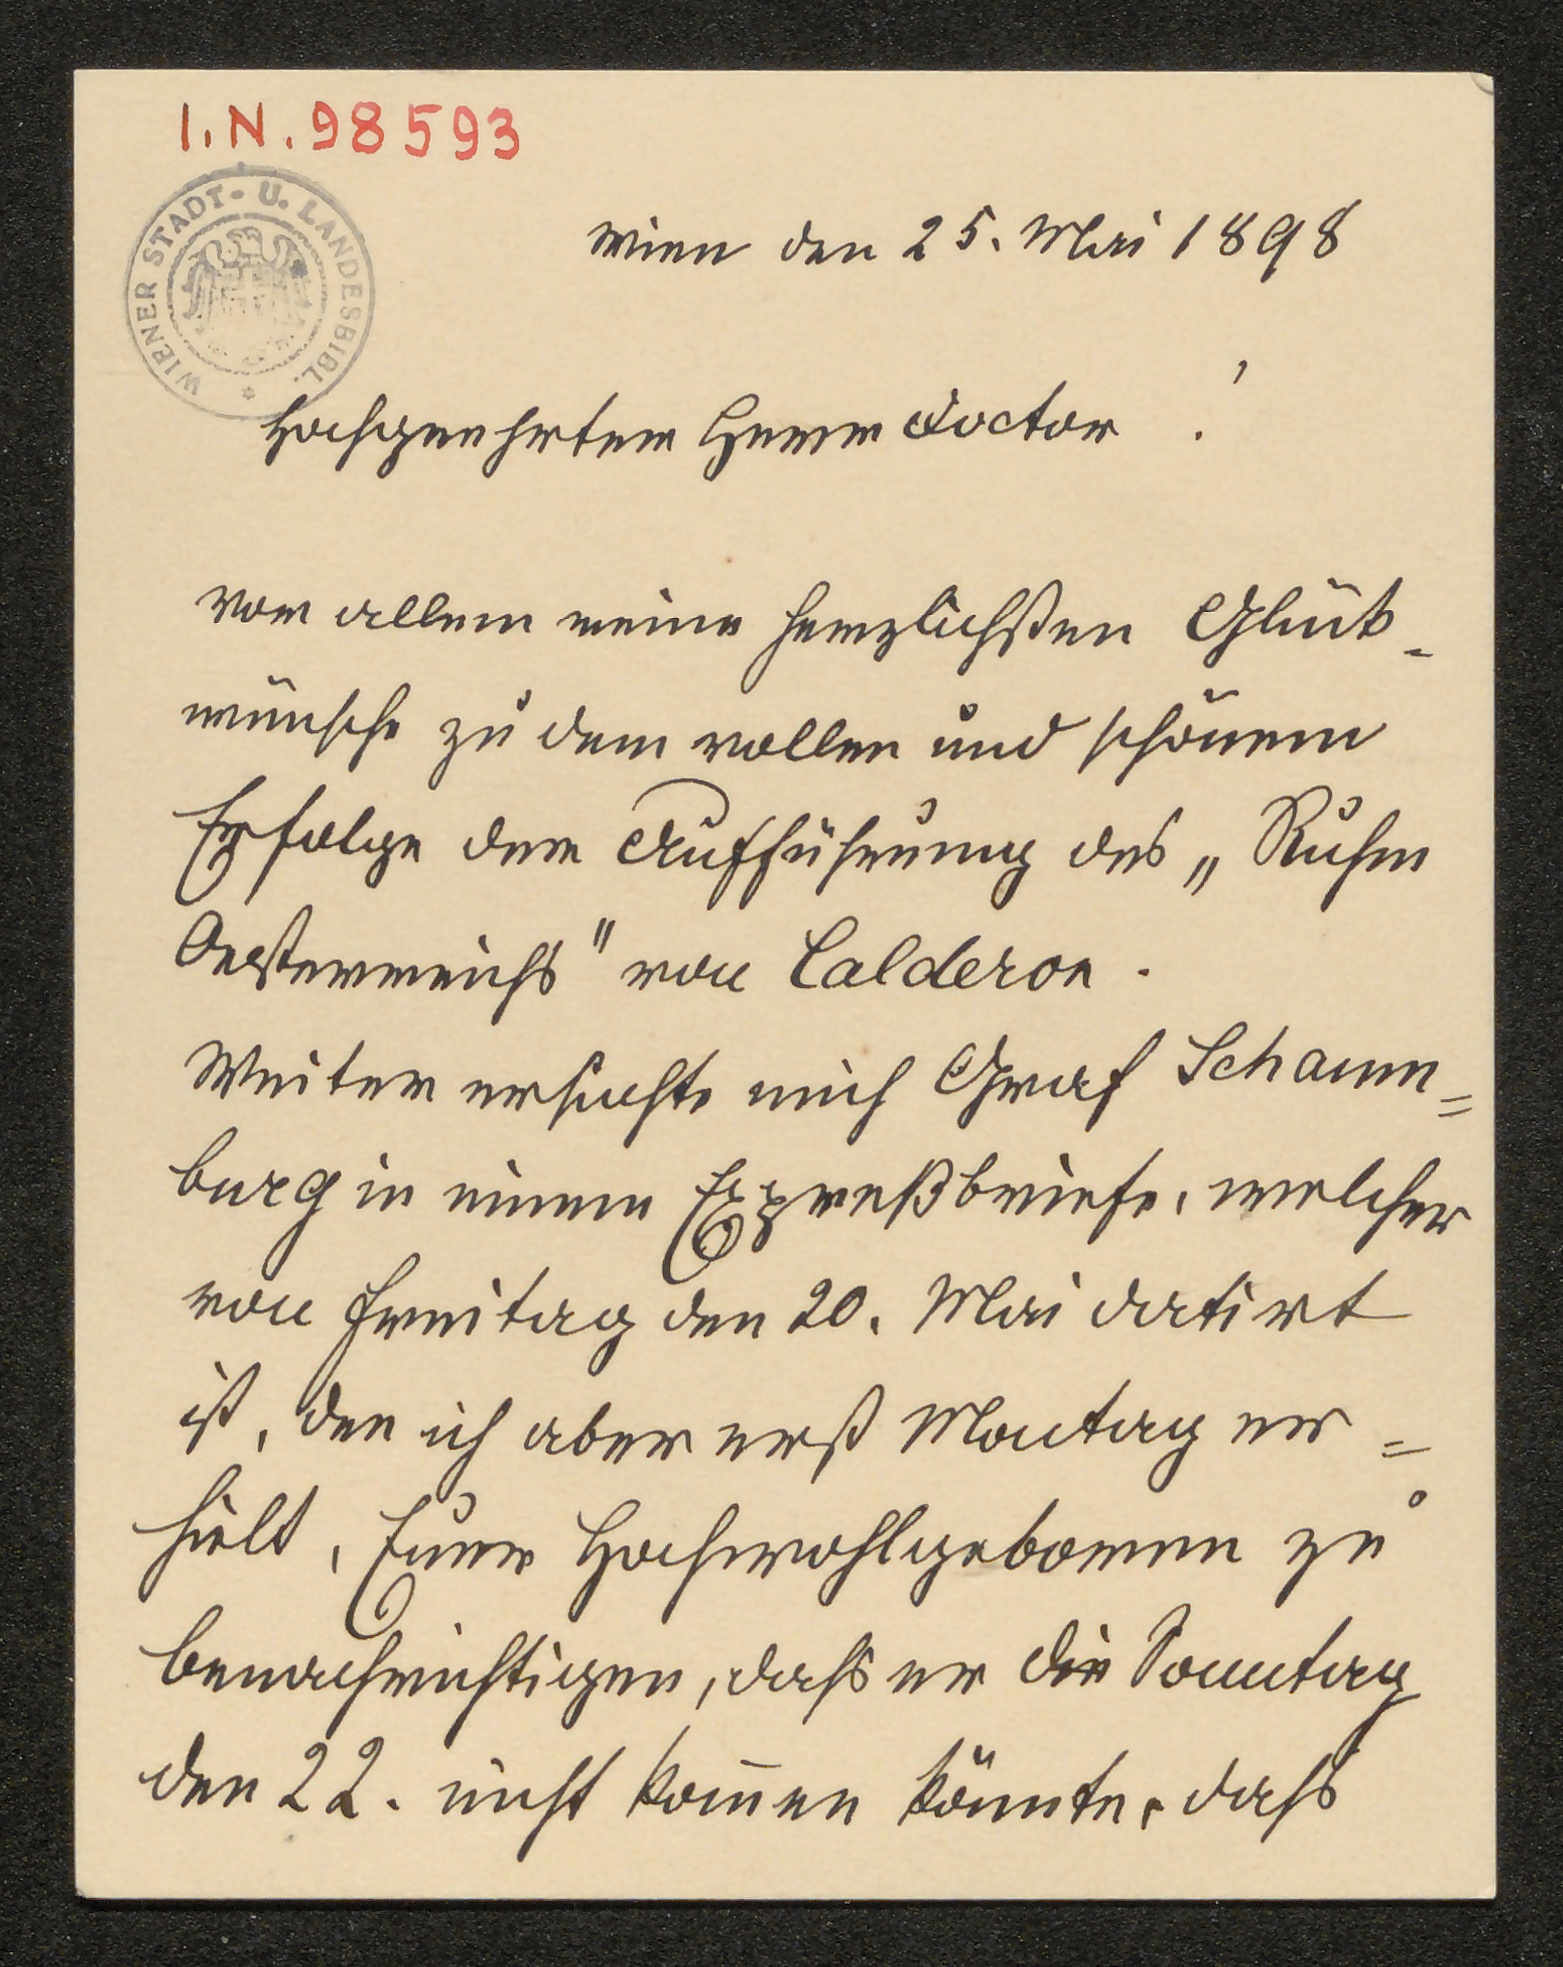 I.N. 98593
WIENER STADT- U. LANDESBIBL.
Wien den 25. Mai 1898
Hochgeehrter Herr Doctor !
vor allem meine herzlichsten Glük-
wünsche zu dem vollen und schönen
Erfolge der Aufführung des „Ruhm
Oesterreichs" von Calderon.
Weiter ersuchte mich Graf Schaum=
burg in einem Expreßbriefe, welcher
von Freitag den 20. Mai datirt
ist, den ich aber erst Montag er=
hielt, Euer Hochwohlgeboren zu
benachrichtigen, dass er die Sonntag
den 22. nicht kom̄en könnte, dass